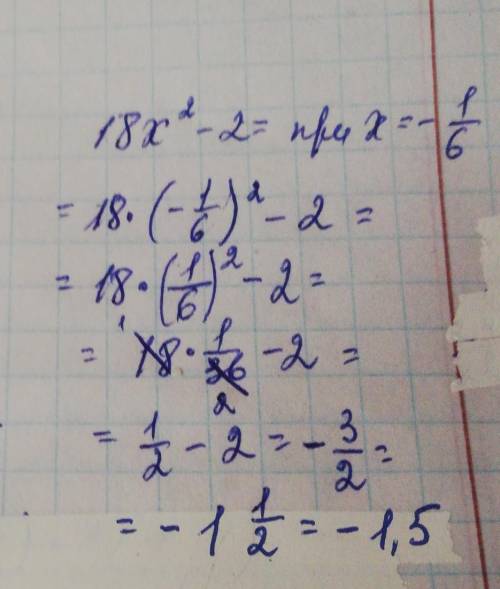 18x² - 2 = при x = -1/6
= 18 · (-1/6)² - 2 =
= 18 · (1/6)² - 2 =
= 1̶8̶ 1 · 1/3̶6̶ 2 - 2 =
= 1/2 - 2 = -3/2 =
= -1 1/2 = -1,5